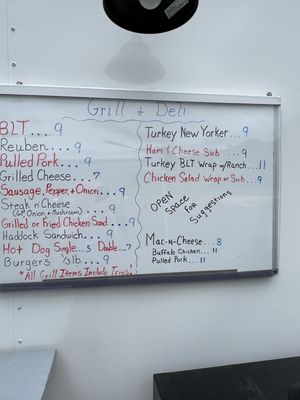 Grill & Deli
BLT... 9
Reuben... 9
Pulled Pork... 9
Grilled Cheese... 7
Sausage, Pepper, & Onion... 9
Steak n' Cheese
(GP, Onion & Mushroom)... 9
Grilled or Fried Chicken Sand... 9
Haddock Sandwich... 9
Hot Dog Single... 5 Double... 7
Burgers 1/3 lb.... 9
*All Grill Items Include Fries*
Turkey New Yorker... 9
Ham & Cheese Sub... 9
Turkey BLT Wrap w/Ranch... 11
Chicken Salad Wrap or Sub... 9
OPEN
Space
For
Suggestions
Mac-N-Cheese... 8
Buffalo Chicken... 11
Pulled Pork... 11